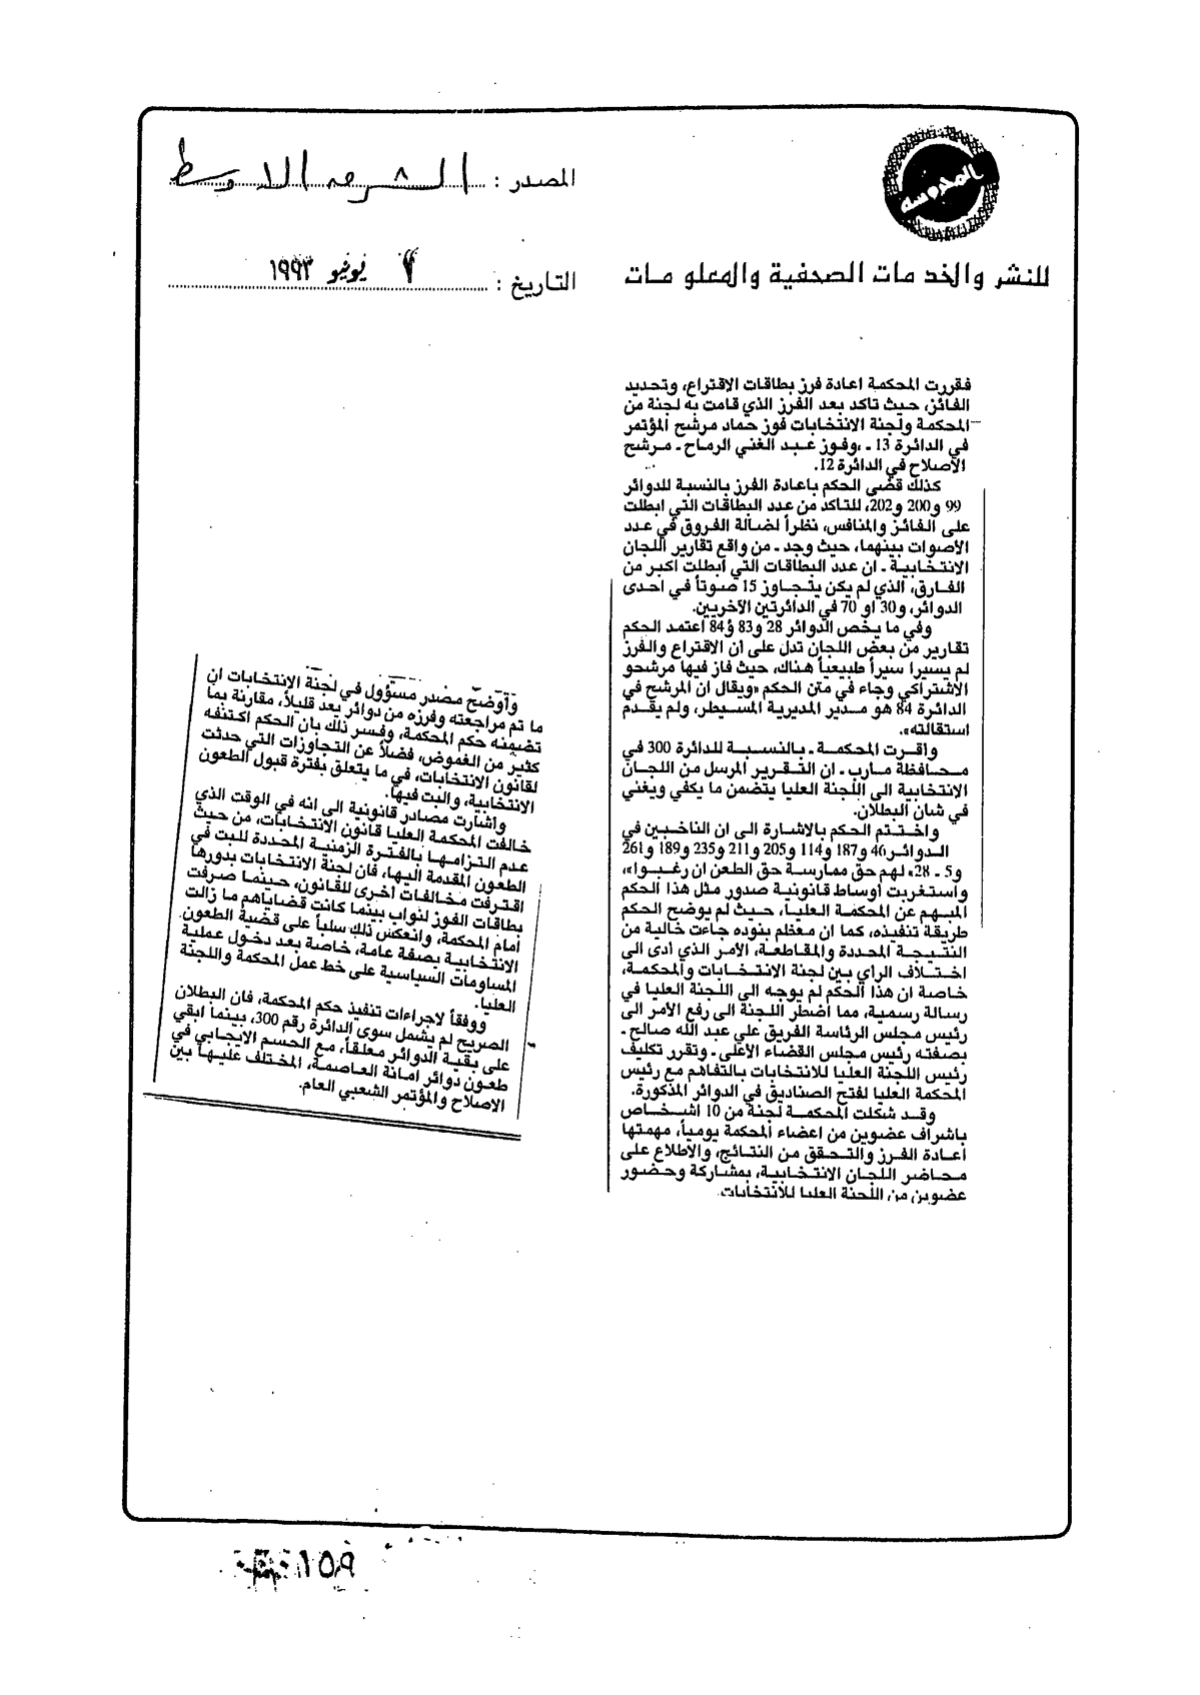 المحروسة
للنشر والخدمات الصحفية والمعلومات
المصدر : الشرق الاوسط
التاريخ : ٧ يونيو ١٩٩٣
فقررت المحكمة اعادة فرز بطاقات الاقتراع، وتحديد
الفائز، حيث تاكد بعد الفرز الذي قامت به لجنة من
المحكمة ولجنة الانتخابات فوز حماد مرشح المؤتمر
في الدائرة 13 ـ ،وفوز عبد الغني الرماح ـ مرشح
الاصلاح في الدائرة 12.
كذلك قضى الحكم باعادة الفرز بالنسبة للدوائر
99 و200 و202، للتاكد من عدد البطاقات التي ابطلت
على الفائز والمنافس، نظراً لضالة الفروق في عدد
الاصوات بينهما، حيث وجد ـ من واقع تقارير اللجان
الانتخابية ـ ان عدد البطاقات التي ابطلت اكبر من
الفارق، الذي لم يكن يتجاوز 15 صوتاً في احدى
الدوائر، و30 او 70 في الدائرتين الآخريين.
وفي ما يخص الدوائر 28 و83 و84 اعتمد الحكم
تقارير من بعض اللجان تدل على ان الاقتراع والفرز
لم يسيرا سيراً طبيعياً هناك، حيث فاز فيها مرشحو
الاشتراكي وجاء في متن الحكم «ويقال ان المرشح في
الدائرة 84 هو مدير المديرية المسيطر، ولم يقدم
استقالته».
واقرت المحكمة ـ بالنسبة للدائرة 300 في
محافظة مارب ـ ان التقرير المرسل من اللجان
الانتخابية الى اللجنة العليا يتضمن ما يكفي ويغني
في شان البطلان.
واختتم الحكم بالاشارة الى ان الناخبين في
الدوائر46 و187 و114 و205 و211 و235 و189 و261
و5 ـ 28» لهم حق ممارسة حق الطعن ان رغبوا»،
واستغربت اوساط قانونية صدور مثل هذا الحكم
المبهم عن المحكمة العليا، حيث لم يوضح الحكم
طريقة تنفيذه، كما ان معظم بنوده جاءت خالية من
النتيجة المحددة والمقاطعة، الامر الذي ادى الى
اختلاف الراي بين لجنة الانتخابات والمحكمة،
خاصة ان هذا الحكم لم يوجه الى اللجنة العليا في
رسالة رسمية، مما اضطر اللجنة الى رفع الامر الى
رئيس مجلس الرئاسة الفريق علي عبد الله صالح ـ
بصفته رئيس مجلس القضاء الاعلى ـ وتقرر تكليف
رئيس اللجنة العليا للانتخابات بالتفاهم مع رئيس
المحكمة العليا لفتح الصناديق في الدوائر المذكورة.
وقد شكلت المحكمة لجنة من 10 اشخاص
باشراف عضوين من اعضاء المحكمة يومياً، مهمتها
اعادة الفرز والتحقق من النتائج، والاطلاع على
محاضر اللجان الانتخابية، بمشاركة وحضور
عضوين من اللجنة العليا للانتخابات.
وأوضح مصدر مسؤول في لجنة الانتخابات ان
ما تم مراجعته وفرزه من دوائر يعد قليلاً، مقارنة بما
تضمنه حكم المحكمة، وفسر ذلك بان الحكم اكتنفه
كثير من الغموض، فضلاً عن التجاوزات التي حدثت
لقانون الانتخابات، في ما يتعلق بفترة قبول الطعون
الانتخابية، والبت فيها.
واشارت مصادر قانونية الى انه في الوقت الذي
خالفت المحكمة العليا قانون الانتخابات، من حيث
عدم التزامها بالفترة الزمنية المحددة للبت في
الطعون المقدمة اليها، فان لجنة الانتخابات بدورها
اقترفت مخالفات اخرى للقانون، حينما صرفت
بطاقات الفوز لنواب بينما كانت قضاياهم ما زالت
أمام المحكمة، وانعكس ذلك سلباً على قضية الطعون
الانتخابية بصفة عامة، خاصة بعد دخول عملية
المساومات السياسية على خط عمل المحكمة واللجنة
العليا.
ووفقاً لاجراءات تنفيذ حكم المحكمة، فان البطلان
الصريح لم يشمل سوى الدائرة رقم 300، بينما ابقي
على بقية الدوائر معلقاً، مع الحسم الايجابي في
طعون دوائر امانة العاصمة، المختلف عليها بين
الاصلاح والمؤتمر الشعبي العام.
١٥٩